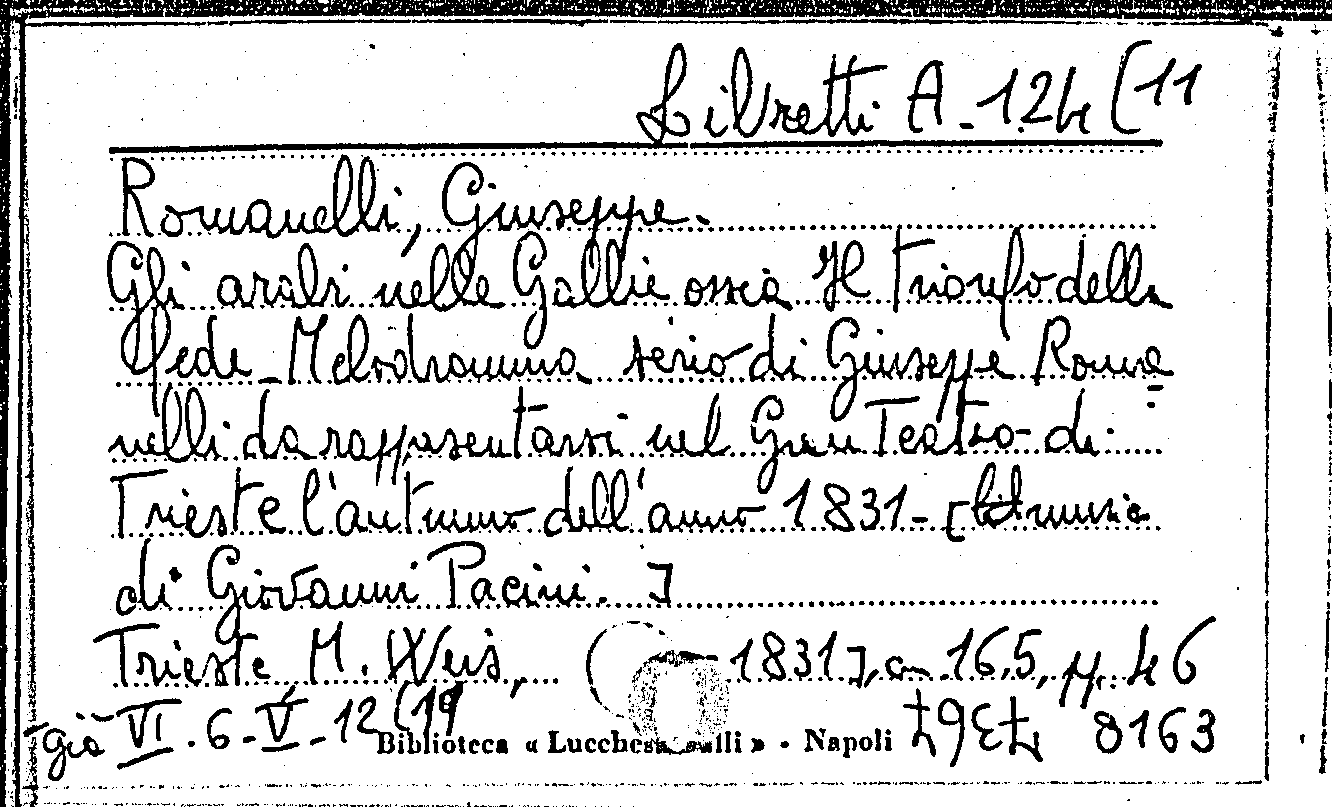 Libretti A. 124 (11
Romanelli, Giuseppe.
Gli arabi nelle Gallie ossia Il trionfo della
fede - Melodramma serio di Giuseppe Roma=
nelli da rappresentarsi nel Gran Teatro di
Trieste l'autunno dell'anno 1831 - [ musica
di Giovanni Pacini.]
Trieste, M. Weis, 1831], cm. 16,5, pp. 46
già VI. 6. V. 12 (19
Biblioteca « Lucchesi Palli » - Napoli 8163